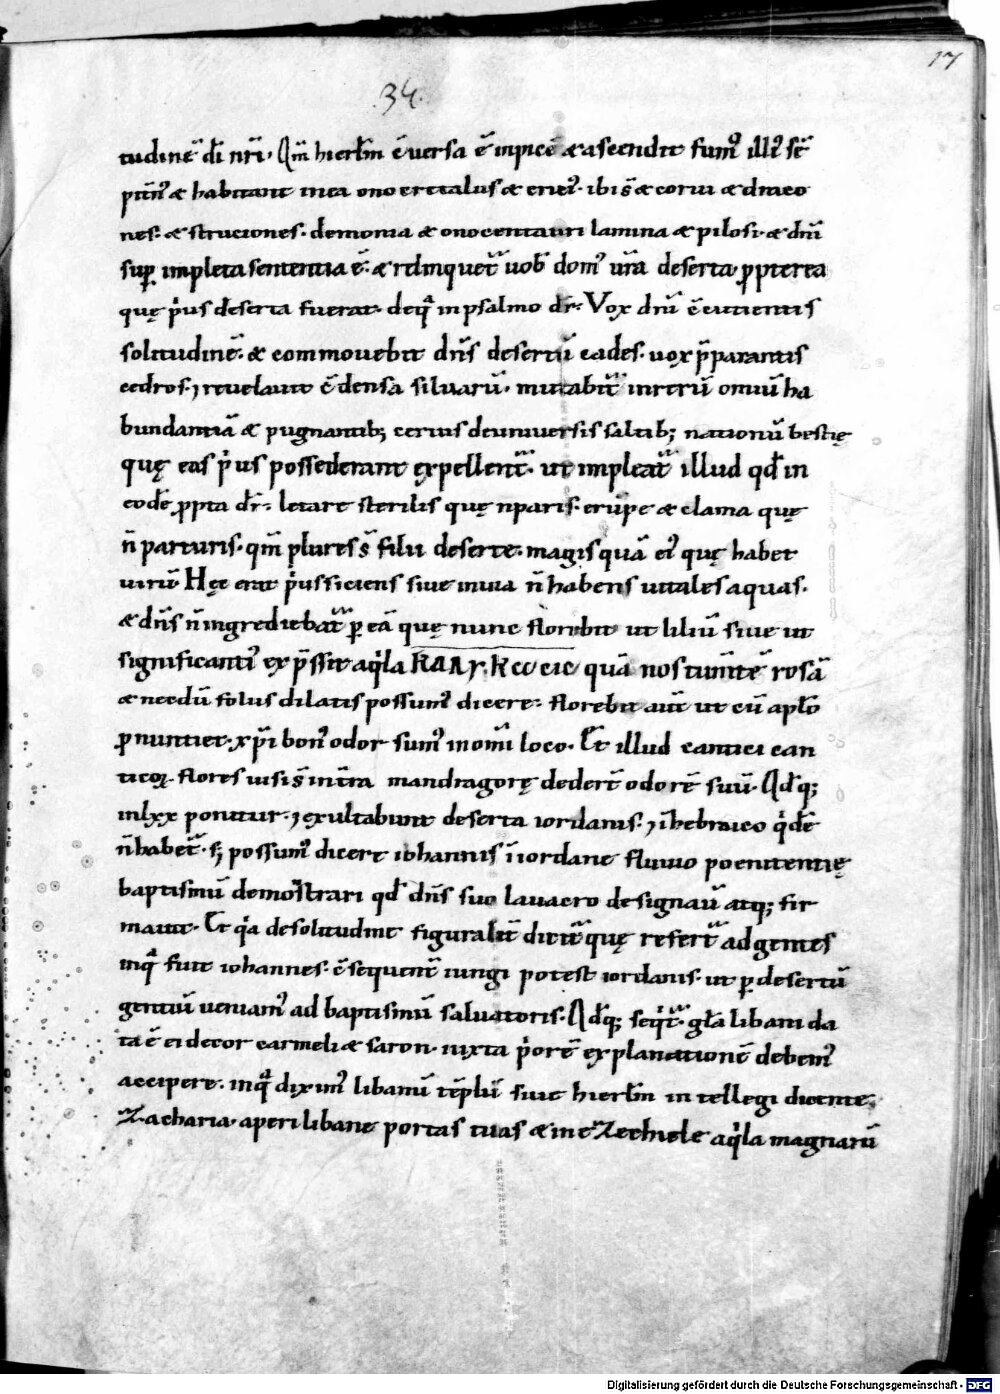 17
34.
tudinē dī nrī. Qm̄ hierlm̄ ēuersa ē inpicē & ascendit fumꝰ illiꝰ sē
pitnꝰ & habitant inea onocrotalus & eriꝰ. ibis & corui & draco
nes. & struciones. demonia & onocentauri lamina & pilosi. & dnī
sup̄ impleta sententia ē. & relinquet̄ uob̄ domꝰ ūra deserta. ꝓpterea
quę pͥus deserta fuerat. deq̄ inpsalmo dr̄. Vox dnī ꝯcutientis
solitudinē. & commouebit dn̄s desertū cades. uox p̄parantis
cedros. ⁊ reuelauit ꝯdensa siluarū. mutabit̄ inrerū omniū ha
bundantiā & pugnantib; ceruis deuniuersis saltib; nationū bestię
quę eas pͥus possederant expellent̄. ut impleat̄ illud qd̄ in
eodē ꝓpħa dr̄. letare sterilis quę n̄paris. erūpe & clama quę
n̄ parturis. qm̄ plures s̄ filii deserte. magis quā eiꝰ quę habet
uirū. Hęc erat pͥus siciens siue inuia n̄ habens uitales aquas.
& dn̄s n̄ ingrediebat̄ p̄ eā quę nunc florebit ut liliū siue ut
significantiꝰ exp̄ssit aqͥla ΚΑΛΥΚωCIC quā nos tum̄tē rosā
& necdū foliis dilatis possumꝰ dicere. florebit aut̄ ut cū apl̄o
ꝓnuntiet. xp̄i bonꝰ odor sumꝰ inomī loco. Et illud cantici can
ticoꝝ. flores uisi s̄ inter̄ra mandragorę dedert̄ odorē suū. Qd̄q;
inlxx ponitur. ⁊ exultabunt deserta iordanis. ⁊ īhebraico qͥdē
n̄habet̄. s; possumꝰ dicere iohannis īiordane fluuio poenitentię
baptismū demoſtrari qd̄ dn̄s suo lauacro designauit̄ atq; fir
mauit. Et qͥa desolitudine figuralit̄ dicit̄ quę refert̄ ad gentes
inqͣ fuit iohannes. ꝯsequent̄ iungi potest iordanis. ut p̄ desertū
gentiū ueniamꝰ ad baptismū saluatoris. Qd̄q; seqͥt̄. gl̄a libani da
ta ē ei decor carmeli & saron. iuxta pͥorē explanationē debemꝰ
accipere. inqͣ diximꝰ libanū tēplū siue hierlm̄ intellegi dicente
Zacharia. aperi libane portas tuas & in eZechiele aqͥla magnarū
Digitalisierung gefördert durch die Deutsche Forschungsgemeinschaft - DFG